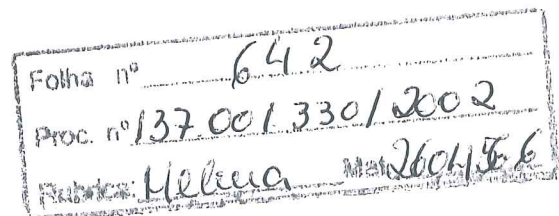 Folha nº 642
Proc. nº 137.001330/2002
Rubrica: Helena Mat